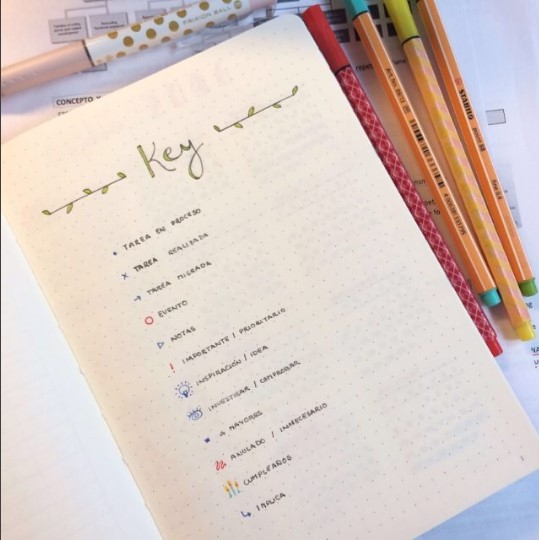 FRIXION BALL
CONCEPTO
Key
• TAREA EN PROCESO
x TAREA REALIZADA
→ TAREA MIGRADA
○ EVENTO
▷ NOTAS
! IMPORTANTE / PRIORITARIO
INSPIRACIÓN / IDEA
INVESTIGAR / COMPROBAR
A MAYORES
ANULADO / INNECESARIO
CUMPLEAÑOS
↳ IMPLICA
STABILO